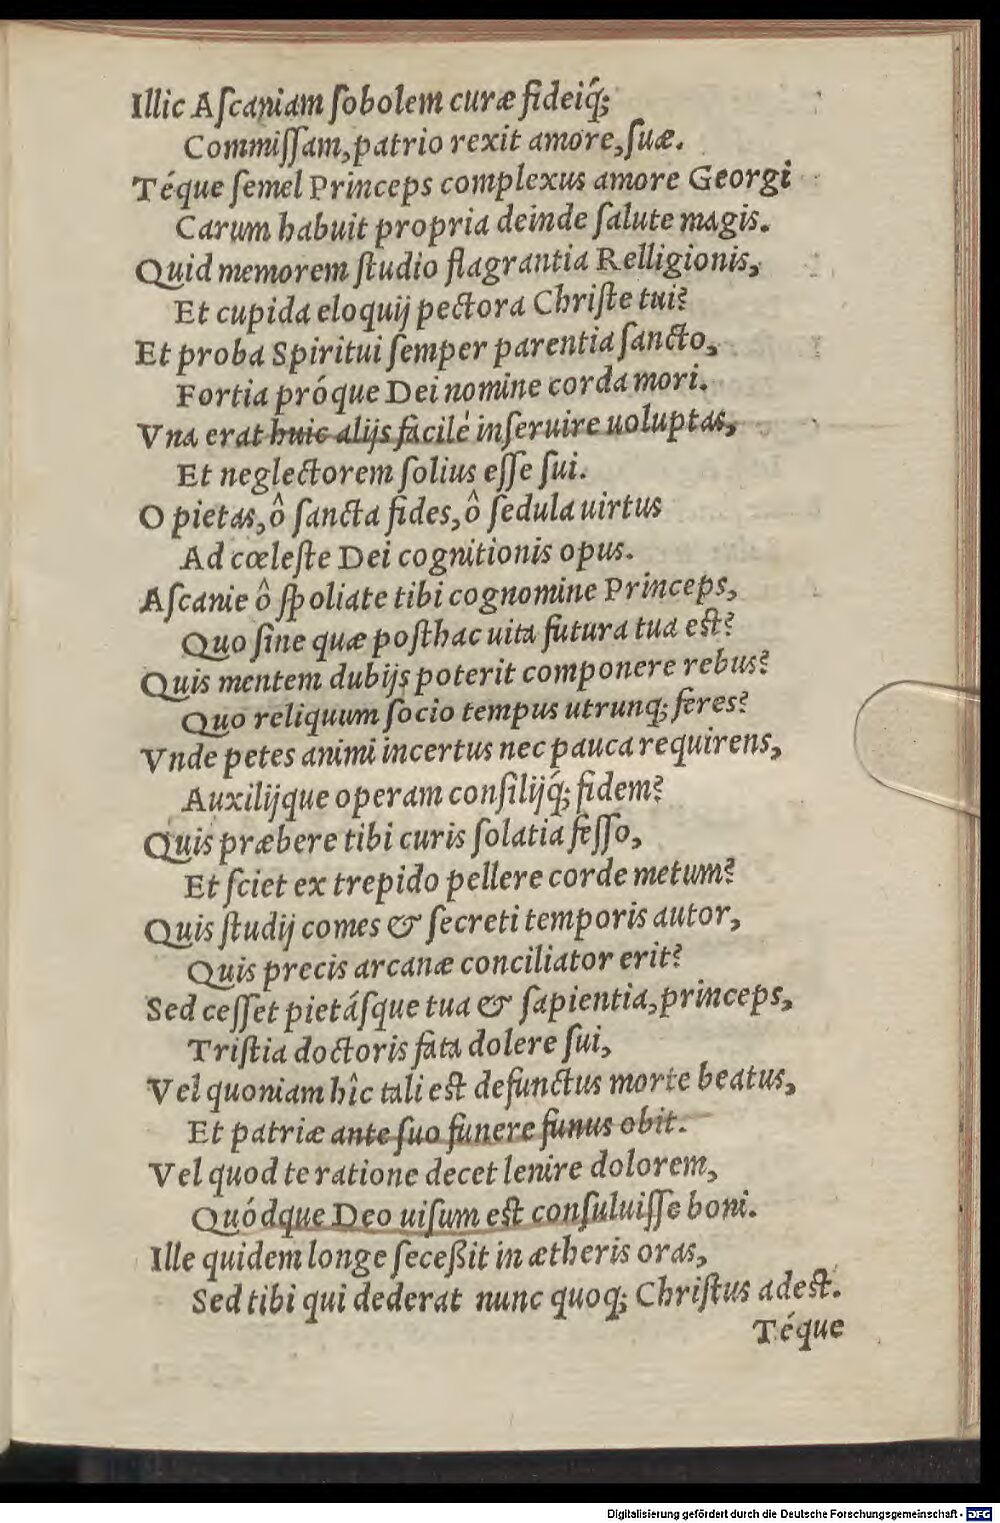 Illic Aſcaniam ſobolem curæ fideiq́;
Commiſſam, patrio rexit amore, ſuæ.
Téque ſemel Princeps complexus amore Georgi
Carum habuit propria deinde ſalute magis.
Quid memorem ſtudio flagrantia Relligionis,
Et cupida eloquij pectora Chriſte tui?
Et proba Spiritui ſemper parentia ſancto,
Fortia próque Dei nomine corda mori.
Vna erat huic alijs facilè inſeruire uoluptas,
Et neglectorem ſolius eſſe ſui.
O pietas, ô ſancta fides, ô ſedula uirtus
Ad cœleſte Dei cognitionis opus.
Aſcanie ô ſpoliate tibi cognomine Princeps,
Quo ſine quæ poſthac uita futura tua eſt?
Quis mentem dubijs poterit componere rebus?
Quo reliquum ſocio tempus utrunq; feres?
Vnde petes animi incertus nec pauca requirens,
Auxilijque operam conſilijq́; fidem?
Quis præbere tibi curis ſolatia feſſo,
Et ſciet ex trepido pellere corde metum?
Quis ſtudij comes & ſecreti temporis autor,
Quis precis arcanæ conciliator erit?
Sed ceſſet pietáſque tua & ſapientia, princeps,
Triſtia doctoris fata dolere ſui,
Vel quoniam hîc tali eſt defunctus morte beatus,
Et patriæ ante ſuo funere funus obit.
Vel quod te ratione decet lenire dolorem,
Quódque Deo uiſum eſt conſuluiſſe boni.
Ille quidem longe ſeceßit in ætheris oras,
Sed tibi qui dederat nunc quoq; Chriſtus adeſt.
Téque
Digitalisierung gefördert durch die Deutsche Forschungsgemeinschaft - DFG